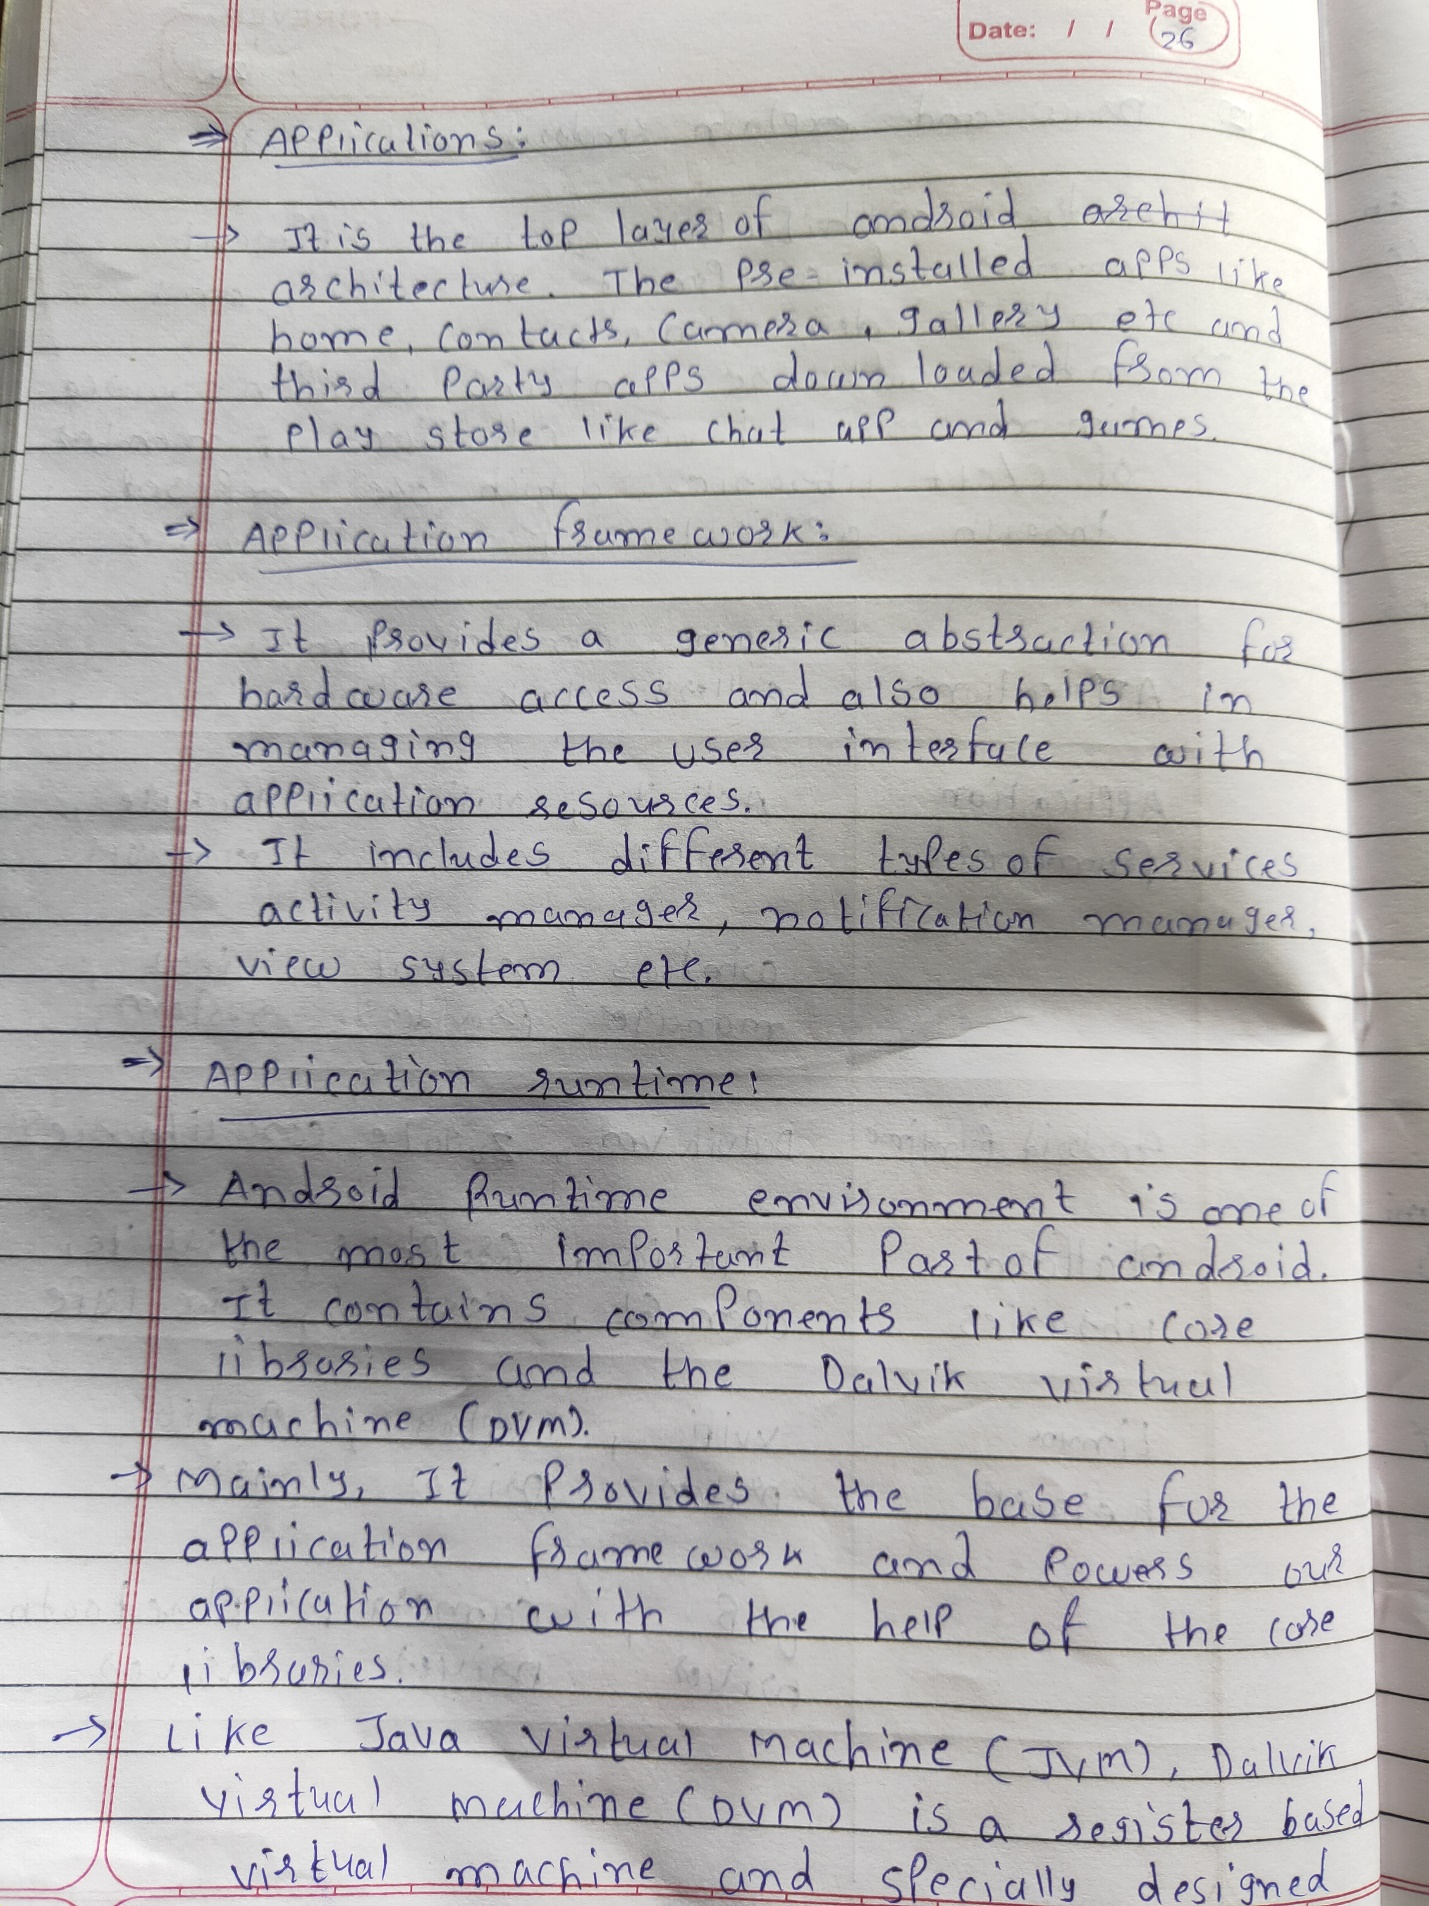 Page
Date: / / 26
⇒ Applications:
→ It is the top layer of android archit
architecture. The pre-installed apps like
home, contacts, camera, gallery etc and
third party apps down loaded from the
play store like chat app and games.
⇒ Application framework:
→ It provides a generic abstraction for
hardware access and also helps in
managing the user interface with
application resources.
→ It includes different types of services
activity manager, notification manager,
view system etc.
⇒ Application runtime:
→ Android Runtime environment is one of
the most important part of android.
It contains components like core
libraries and the Dalvik virtual
machine (DVM).
→ Mainly, It provides the base for the
application framework and powers our
application with the help of the core
libraries.
→ Like Java virtual machine (JVM), Dalvik
virtual machine (DVM) is a register based
virtual machine and specially designed